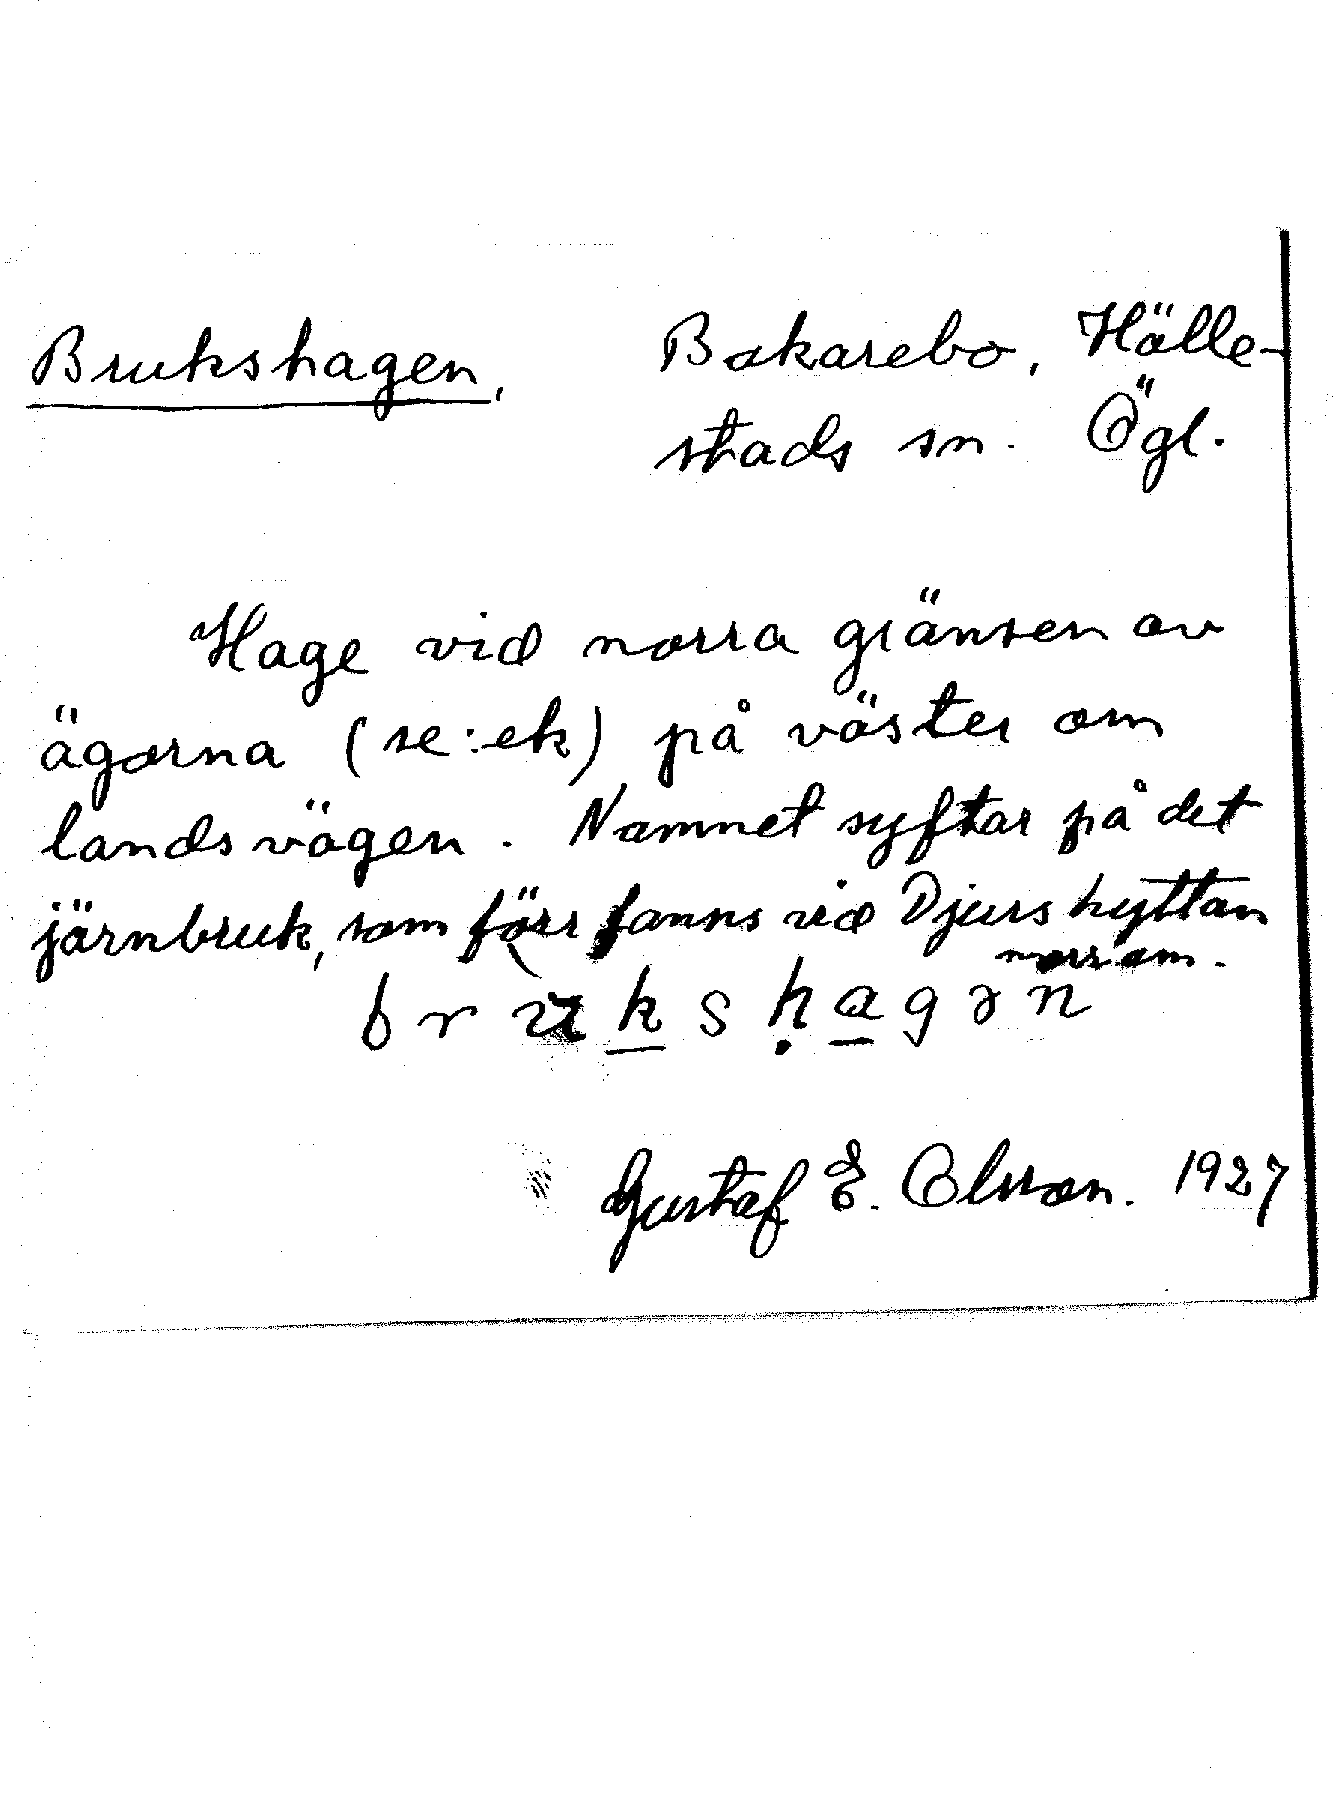 Brukshagen, Bokarebo, Hälle-
stads sn. Ögl.
Hage vid norra gränsen av
ägorna (se: ek) på väster om
landsvägen. Namnet syftar på det
järnbruk, som förr fanns vid Djurshyttan
norr om.
br k s ḥ a̲ g ə n
Gustaf E. Olsson. 1927